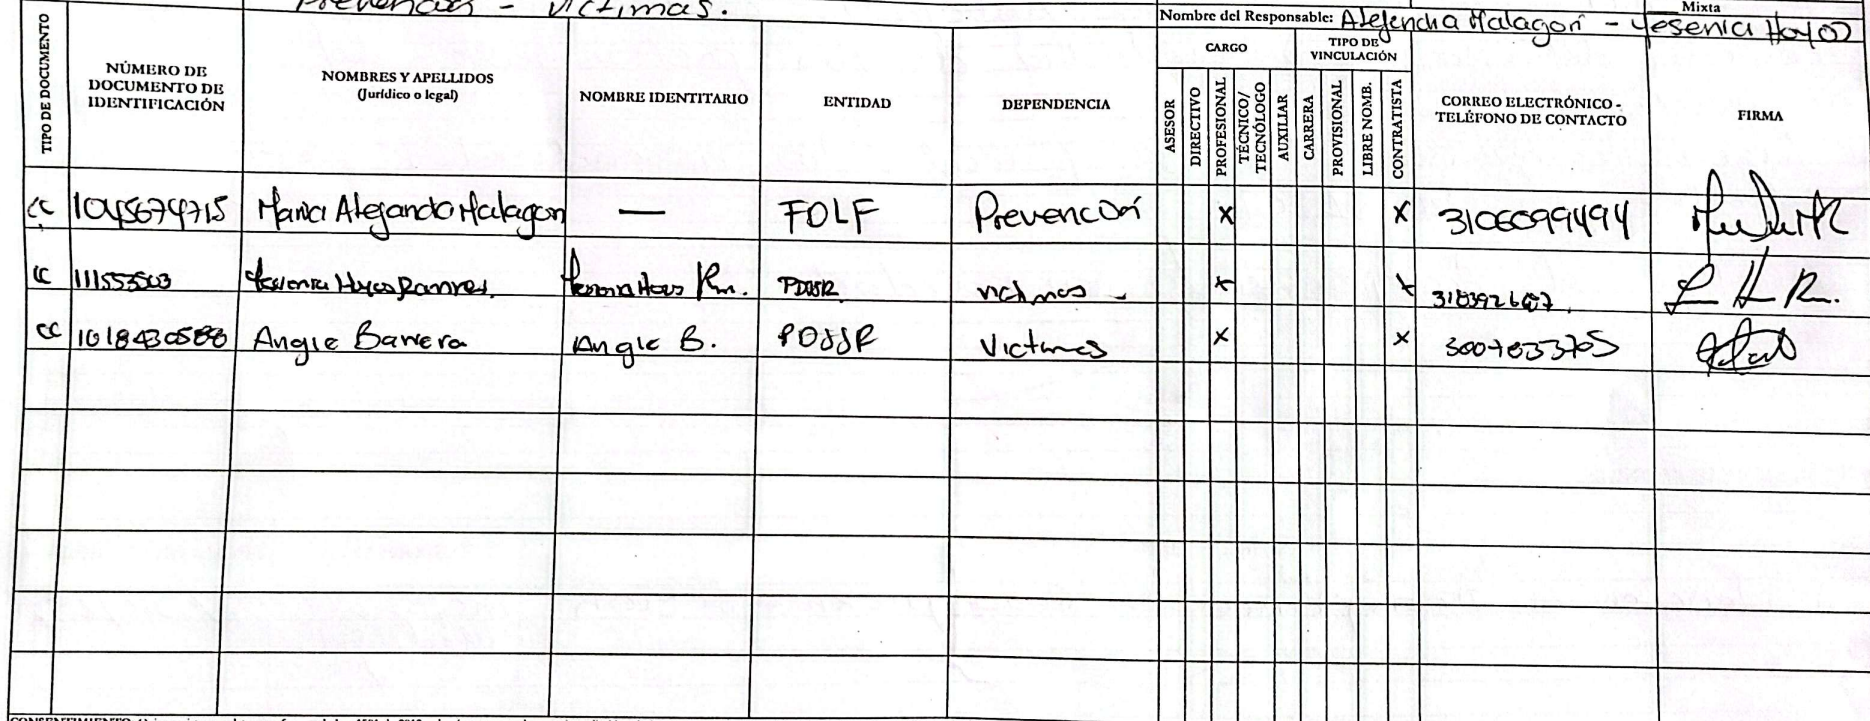 Prevención - Victimas.
Mixta
Nombre del Responsable: Alejandra Malagon - Yesenia Hoyos
TIPO DE DOCUMENTO
NÚMERO DE DOCUMENTO DE IDENTIFICACIÓN
NOMBRES Y APELLIDOS (Jurídico o legal)
NOMBRE IDENTITARIO
ENTIDAD
DEPENDENCIA
CARGO
ASESOR
DIRECTIVO
PROFESIONAL
TÉCNICO/ TECNÓLOGO
AUXILIAR
TIPO DE VINCULACIÓN
CARRERA
PROVISIONAL
LIBRE NOMB.
CONTRATISTA
CORREO ELECTRÓNICO - TELÉFONO DE CONTACTO
FIRMA
CC 1045679715 Maria Alejandra Malagon — FDLF Prevención X X 3106099494
CC Yesenia Hoyos Ramires. victimas - X X
CC 1018430588 Angie Barrera Angie B. Victimas X X 3007833705